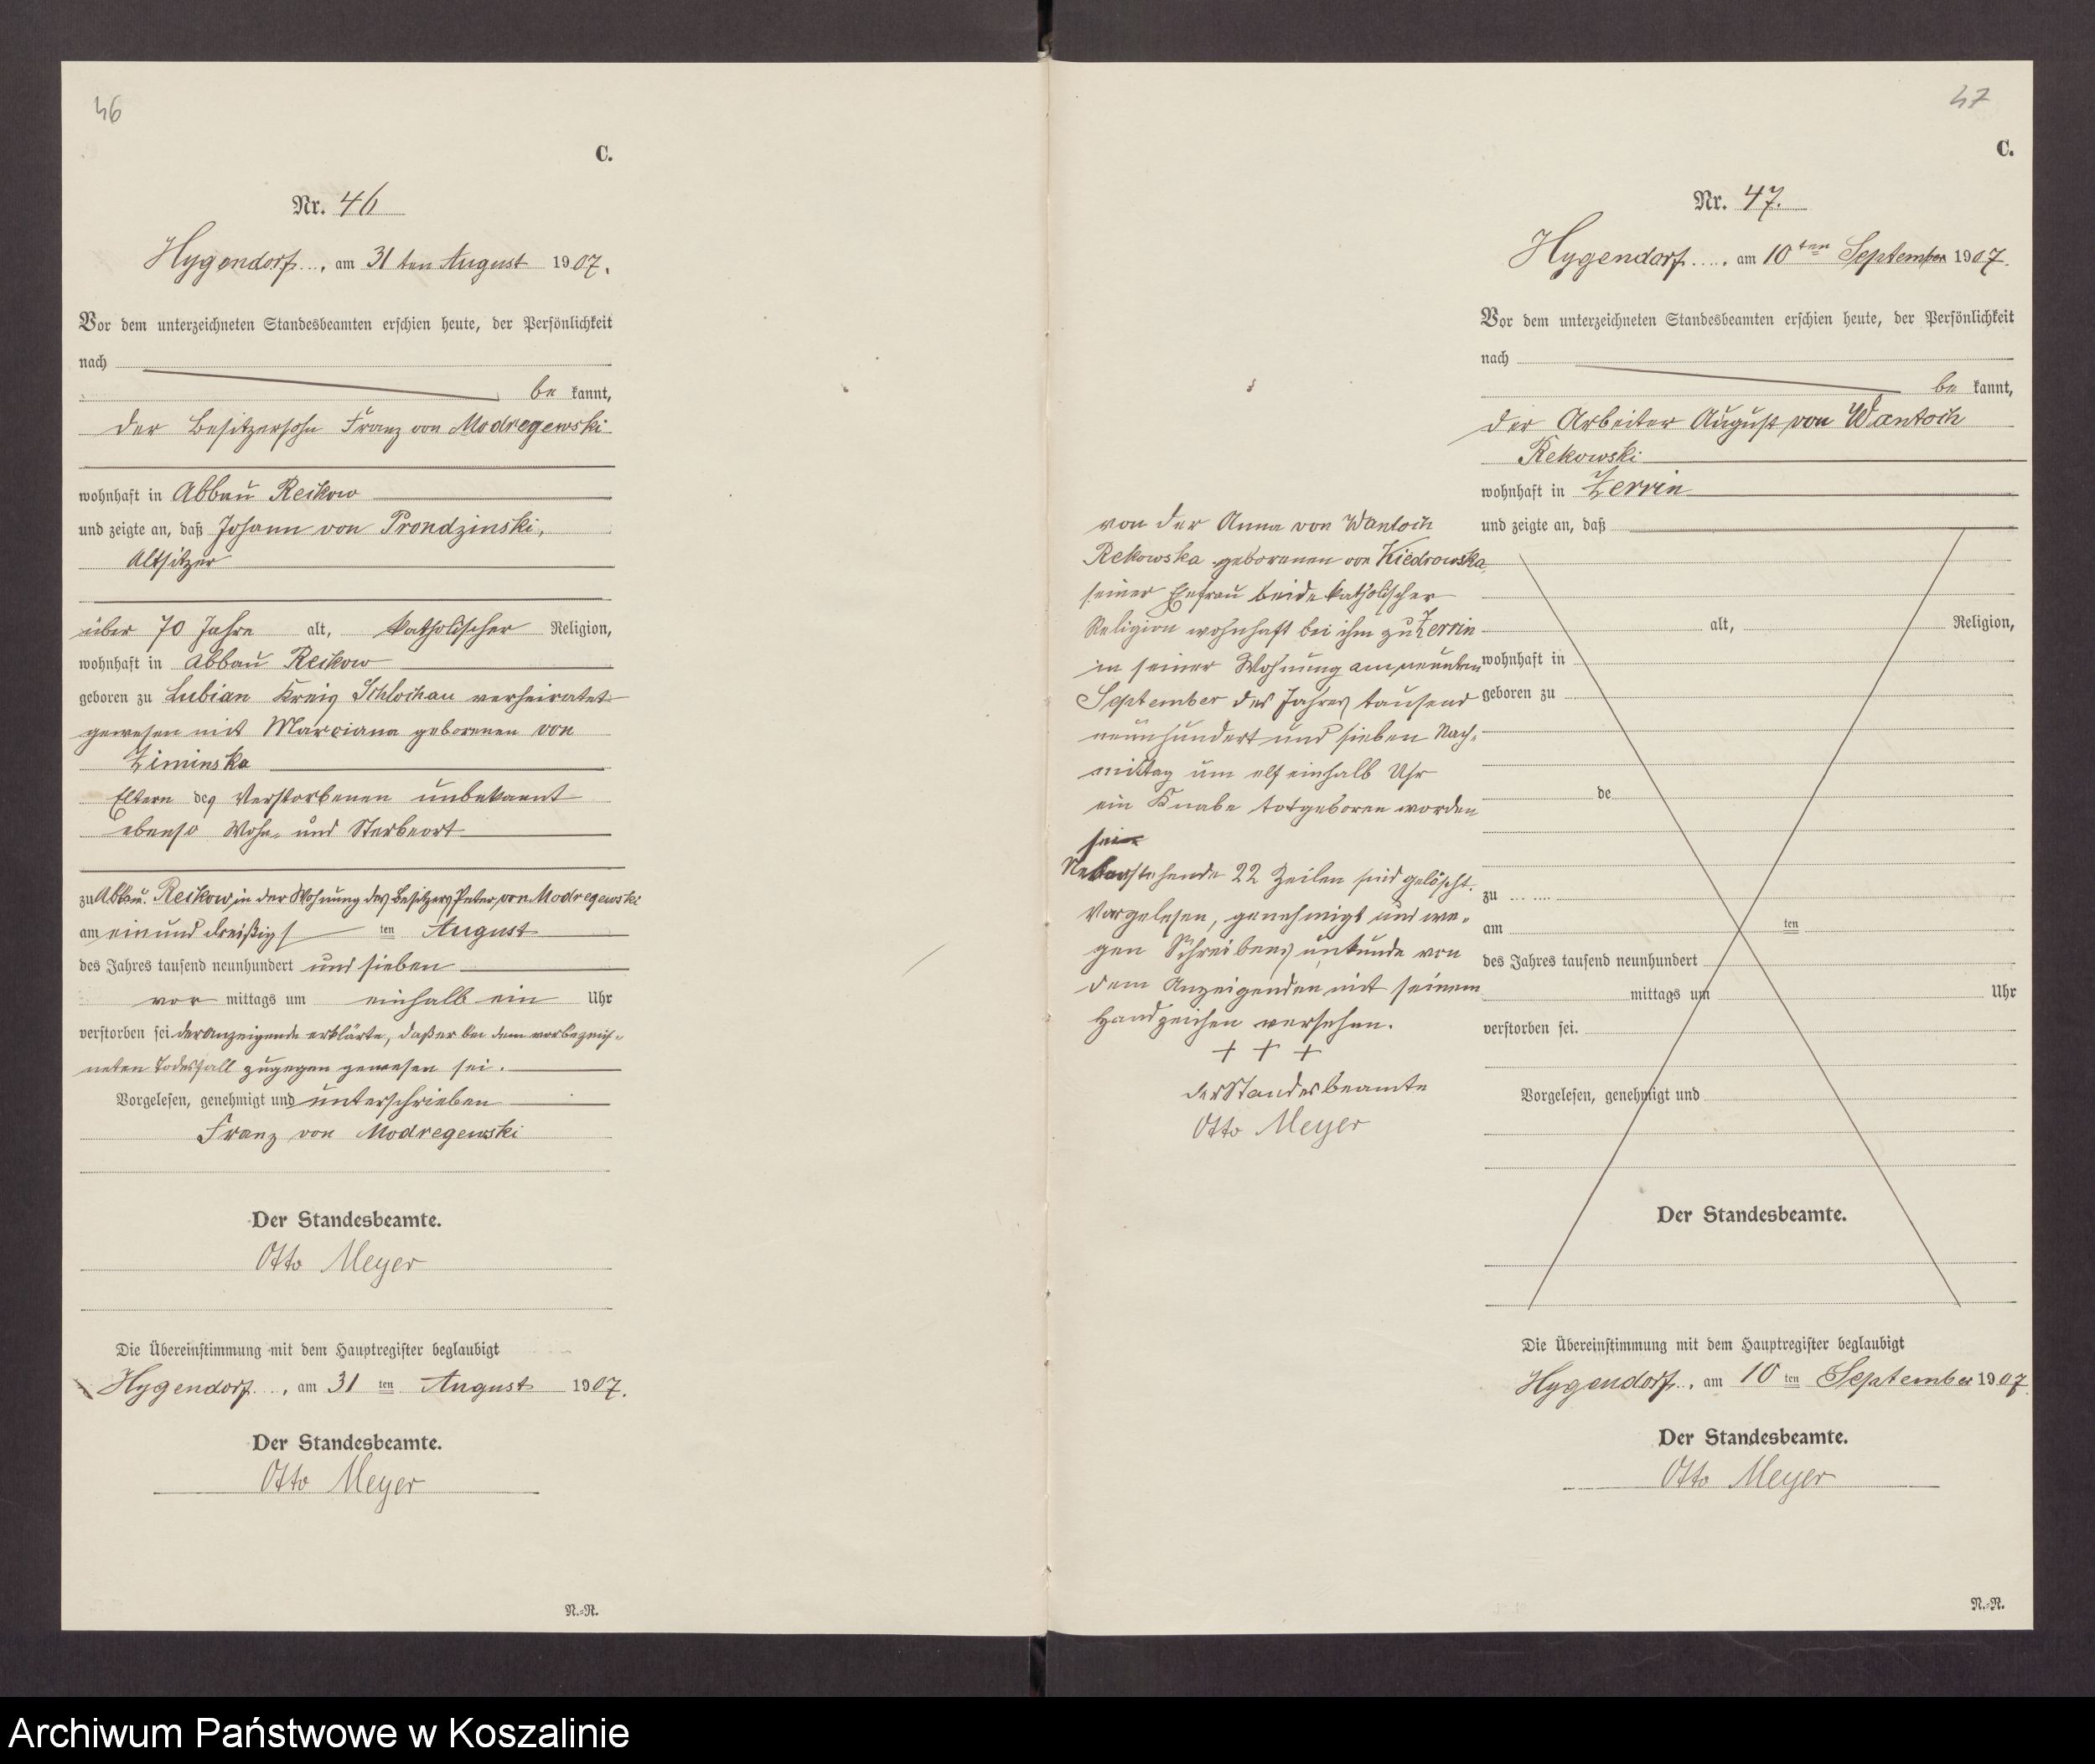 46
C.
Nr. 46
Hygendorf, am 31 ten August 1907.
Vor dem unterzeichneten Standesbeamten erschien heute, der Persönlichkeit
nach
be kannt,
der Besitzersohn Franz von Modregewski
wohnhaft in Abbau Reikow
und zeigte an, daß Johann von Prondzinski,
Altsitzer
über 70 Jahre alt, katholischer Religion,
wohnhaft in Abbau Reikow
geboren zu Lubian Kreis Schlochau verheiratet
gewesen mit Marciana geborenen von
Ziminska
Eltern des Verstorbenen unbekannt
ebenso Wohn- und Sterbeort
zu Abbau Reikow, in der Wohnung des Besitzers Peter von Modregewski
am einund dreißigs ten August
des Jahres tausend neunhundert und sieben
vor mittags um einhalb ein Uhr
verstorben sei. der Anzeigende erklärte, daß er bei dem vorbezeich-
neten Todesfall zugegen gewesen sei.
Vorgelesen, genehmigt und unterschrieben
Franz von Modregewski
Der Standesbeamte.
Otto Meyer
Die Übereinstimmung mit dem Hauptregister beglaubigt
Hygendorf, am 31 ten August 1907.
Der Standesbeamte.
Otto Meyer
N.-R.
47
C.
Nr. 47.
Hygendorf, am 10 ten September 1907.
Vor dem unterzeichneten Standesbeamten erschien heute, der Persönlichkeit
nach
be kannt,
der Arbeiter August von Wantoch
Rekowski
wohnhaft in Zerrin
und zeigte an, daß
von der Anna von Wantoch
Rekowska geborenen von Kiedrowska
seiner Ehefrau beide katholischer
Religion wohnhaft bei ihm zu Zerrin
in seiner Wohnung am neunten
September des Jahres tausend
neunhundert und sieben Nach-
mittag um elf einhalb Uhr
ein Knabe totgeboren worden
sei
Nebenstehende 22 Zeilen sind gelöscht.
Vorgelesen, genehmigt und we-
gen Schreibens unkunde von
dem Anzeigenden mit seinem
Handzeichen versehen.
+ + +
der Standesbeamte
Otto Meyer
alt, Religion,
wohnhaft in
geboren zu
de
zu
am ten
des Jahres tausend neunhundert
mittags um Uhr
verstorben sei.
Vorgelesen, genehmigt und
Der Standesbeamte.
Die Übereinstimmung mit dem Hauptregister beglaubigt
Hygendorf, am 10 ten September 1907.
Der Standesbeamte.
Otto Meyer
N.-R.
Archiwum Państwowe w Koszalinie